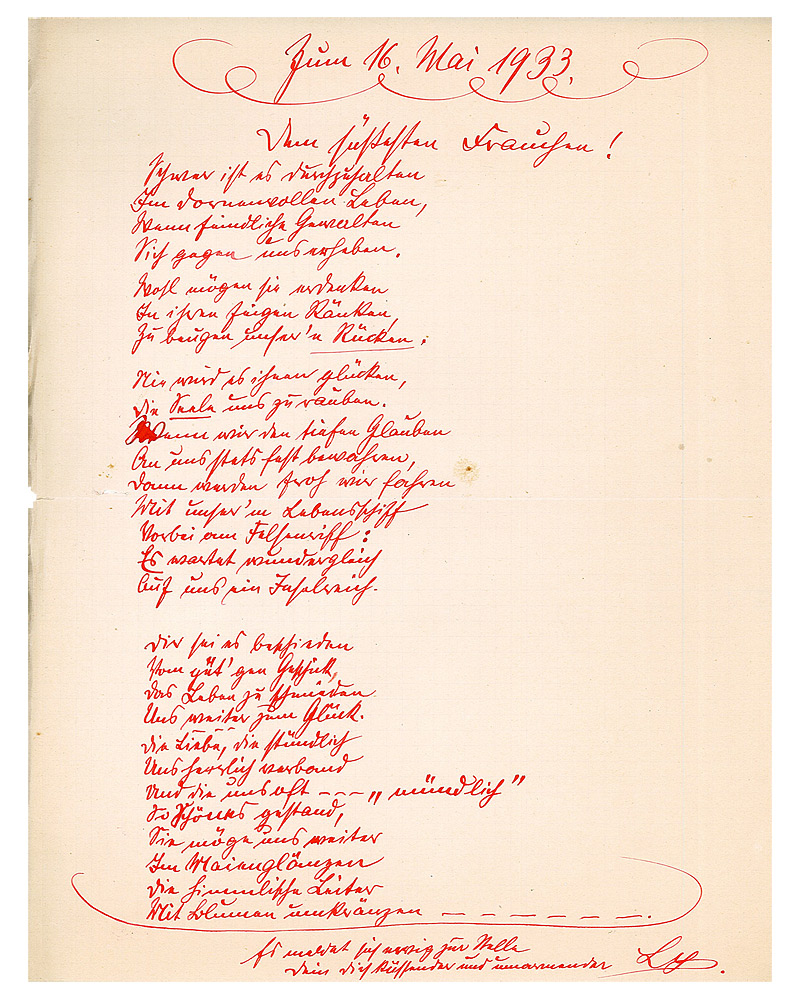 Zum 16. Mai 1933.
Dem süßesten Frauchen!
Schwer ist es durchzuhalten
Im dornenvollen Leben,
Wenn feindliche Gewalten
Sich gegen uns erheben.
Wohl mögen sie erdenken
In ihren feigen Ränken,
Zu beugen unser'n Rücken.
Nie wird es ihnen glücken,
Die Seele uns zu rauben.
Wenn wir den tiefen Glauben
An uns stets fest bewahren,
Dann werden froh wir fahren
Mit unser'm Lebensschiff
Vorbei am Felsenriff:
Es wartet wundergleich
Auf uns ein Inselreich.
Dir sei es beschieden
Vom güt'gen Geschick,
Das Leben zu schmieden
Uns weiter zum Glück.
Die Liebe, die stündlich
Uns herrlich verband
Und die uns oft --- „mündlich"
So Schönes gestand,
Sie möge uns weiter
Im Maienglänzen
Die himmlische Leiter
Mit Blumen umkränzen — — — — — —.
Es meldet sich ewig zur Stelle
Dein Dich küssender und umarmender